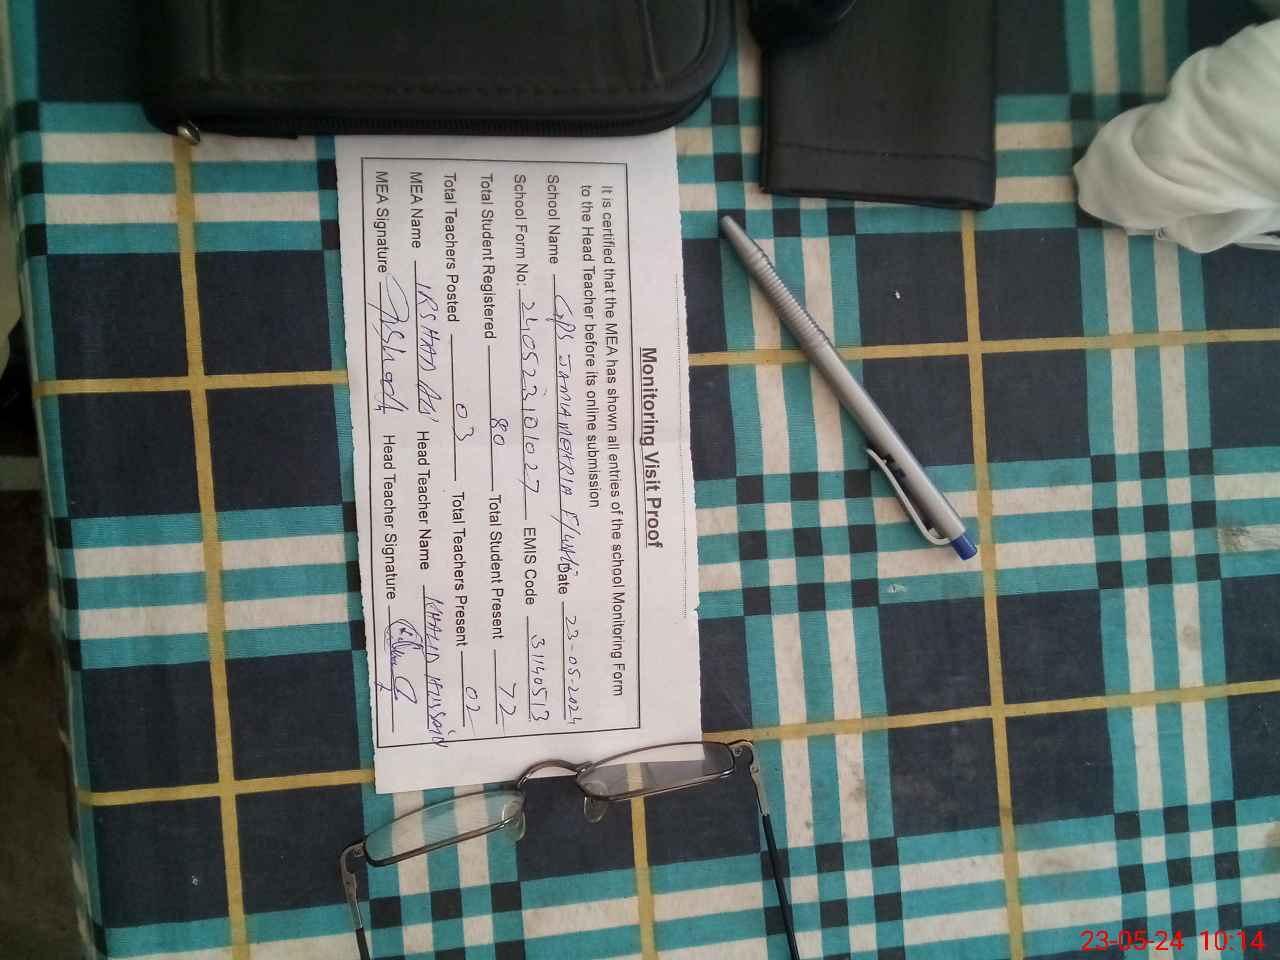 Monitoring Visit Proof
It is certified that the MEA has shown all entries of the school Monitoring Form
to the Head Teacher before its online submission
School Name GPS JAMIA MEHRIA Date 23-05-2024
School Form No: 240523101027 EMIS Code 31140513
Total Student Registered 80 Total Student Present 72
Total Teachers Posted 03 Total Teachers Present 02
MEA Name IRSHAD ALI Head Teacher Name KHALID HUSSAIN
MEA Signature Irshad Head Teacher Signature
23-05-24 10:14